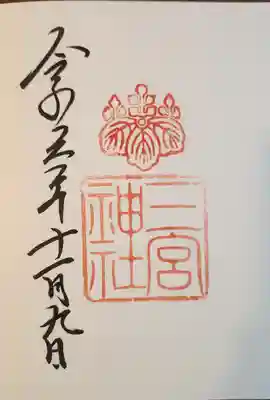 二宮
神社
令和五年十一月九日